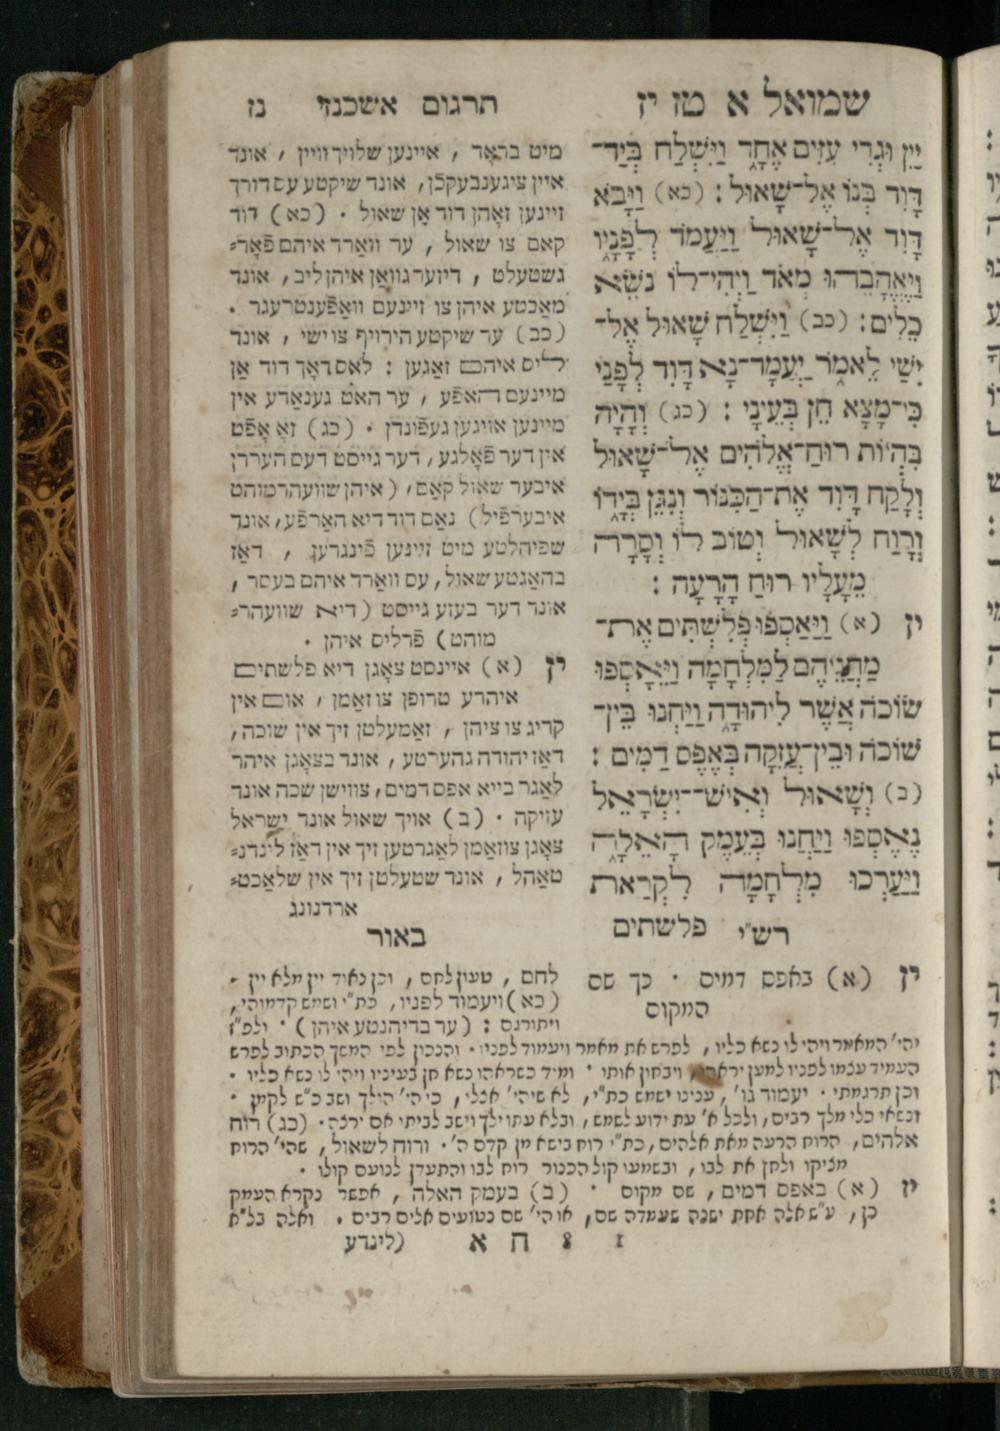 שמואל א טז יז
תרגום אשכנזי נז
יַיִן וּגְדִי עִזִּים אֶחָד וַיִּשְׁלַח בְּיַד־
דָּוִד בְּנוֹ אֶל־שָׁאוּל : (כא) וַיָּבֹא
דָוִד אֶל־שָׁאוּל וַיַּעֲמֹד לְפָנָיו
וַיֶּאֱהָבֵהוּ מְאֹד וַיְהִי־לוֹ נֹשֵׂא
כֵלִים : (כב) וַיִּשְׁלַח שָׁאוּל אֶל־
יִשַׁי לֵאמֹר יַעֲמָד־נָא דָוִד לְפָנַי
כִּי־מָצָא חֵן בְּעֵינָי : (כג) וְהָיָה
בִּהְיוֹת רוּחַ־אֱלֹהִים אֶל־שָׁאוּל
וְלָקַח דָּוִד אֶת־הַכִּנּוֹר וְנִגֵּן בְּיָדוֹ
וְרָוַח לְשָׁאוּל וְטוֹב לוֹ וְסָרָה
מֵעָלָיו רוּחַ הָרָעָה :
יז (א) וַיַּאַסְפוּ פְלִשְׁתִּים אֶת־
מַחֲנֵיהֶם לַמִּלְחָמָה וַיֵּאָסְפוּ
שׂוֹכֹה אֲשֶׁר לִיהוּדָה וַיַּחֲנוּ בֵּין־
שׂוֹכֹה וּבֵין־עֲזֵקָה בְּאֶפֶס דַּמִּים :
(ב) וְשָׁאוּל וְאִישׁ־יִשְׂרָאֵל
נֶאֶסְפוּ וַיַּחֲנוּ בְּעֵמֶק הָאֵלָה
וַיַּעַרְכוּ מִלְחָמָה לִקְרַאת
פלשתים
מיט בראָד , איינען שלויך וויין , אונד
איין ציגענבעקכֿן, אונד שיקטע עס דורך
זיינען זאָהן דוד אָן שאול . (כא) דוד
קאם צו שאול , ער וואַרד איהם פֿאָר⸗
געשטעלט , דיזער געוואַן איהן ליב, אונד
מאַכטע איהן צו זיינעם וואַפֿענטרעגר .
(כב) ער שיקטע הירויף צו ישי , אונד
ליס איהם זאַגען : לאס דאָך דוד אָן
מיינעם האָפֿע , ער האט גענאַדע אין
מיינען אויגען געפֿונדן . (כג) זאָ אָפֿט
אין דער פֿאָלגע, דער גייסט דעס הערן
איבער שאול קאם, (איהן שוועהרמוהט
איבערפֿיל) נאַם דוד דיא האַרפֿע, אונד
שפיהלטע מיט זיינען פֿינגרען , דאַז
בהאַגטע שאול, עס וואַרד איהם בעסר ,
אונד דער בעזע גייסט (דיא שוועהר⸗
מוהט) פֿרליס איהן .
יז (א) איינסט צאָגן דיא פלשתים
איהרע טרופן צוזאַמן , אום אין
קריג צו ציהן , זאַמעלטן זיך אין שוכה,
דאַז יהודה געהערטע , אונד בצאָגן איהר
לאַגר בייא אפס דמים, צווישן שכה אונד
עזיקה . (ב) אויך שאול אונד ישראל
צאָגן צוזאַמן לאַגרטען זיך אין דאַז לינדנ⸗
טאַהל , אונד שטעלטן זיך אין שלאַכט⸗
ארדנונג
רש"י
יז (א) באפס דמים . כך שם
המקום
באור
לחם , טעון לחם , וכן נאוד יין מלא יין .
(כא) ויעמוד לפניו, כת"י ושמש קדמוהי,
ויתורגם : (ער בדיהנטע איהן) . ולפ"ז
יהי' המאמר ויהי לו נשא כליו , לפרש את מאמר ויעמוד לפניו . והנכון לפי המשך הכתוב לפרש
העמיד עצמו לפניו למען יראהו, ויבחון אותו . ומיד כשראהו נשא חן בעיניו ויהי לו נשא כליו .
וכן תרגמתי . יעמוד נו', ענינו ישמש כת"י, לא שיהי' אצלו, כי הי' הולך ושב כ"ש לקמן .
ונשאי כלי מלך רבים, ולכל א' עת ידוע לשמש, ובלא עתו ילך וישב לביתו אם ירצה . (כג) רוח
אלהים, הרוח הרעה מאת אלהים, כת"י רוח בישא מן קדם ה' . ורוח לשאול, שהי' הרוח
מציקו ולחץ את לבו, ובשמעו קול הכנור רוח לבו והתעדן לנועם קולו .
יז (א) באפס דמים, שם מקום . (ב) בעמק האלה , אפשר נקרא העמק
כן, ע"ש אלה אחת ישנה שעמדה שם, או הי' שם נטועים אלים רבים . ואלה בל"א
1 8 ח א (לינדע